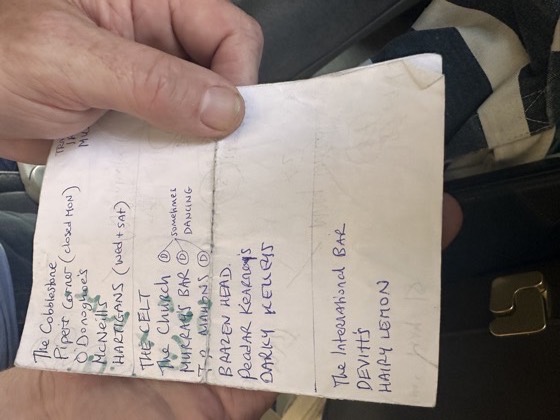 The Cobblestone
Piper's Corner (closed MON)
O'Donoghoe's
McNeills
HARTIGANS (wed + SAT)
THE CELT
The CHURCH Ⓓ
MURRAYS BAR Ⓓ
MAHONS Ⓓ
sometimes
DANCING
BRAZEN HEAD
Peadar Kearney's
DARKY KELLEYS
The International BAR
DEVITTS
HAIRY LEMON